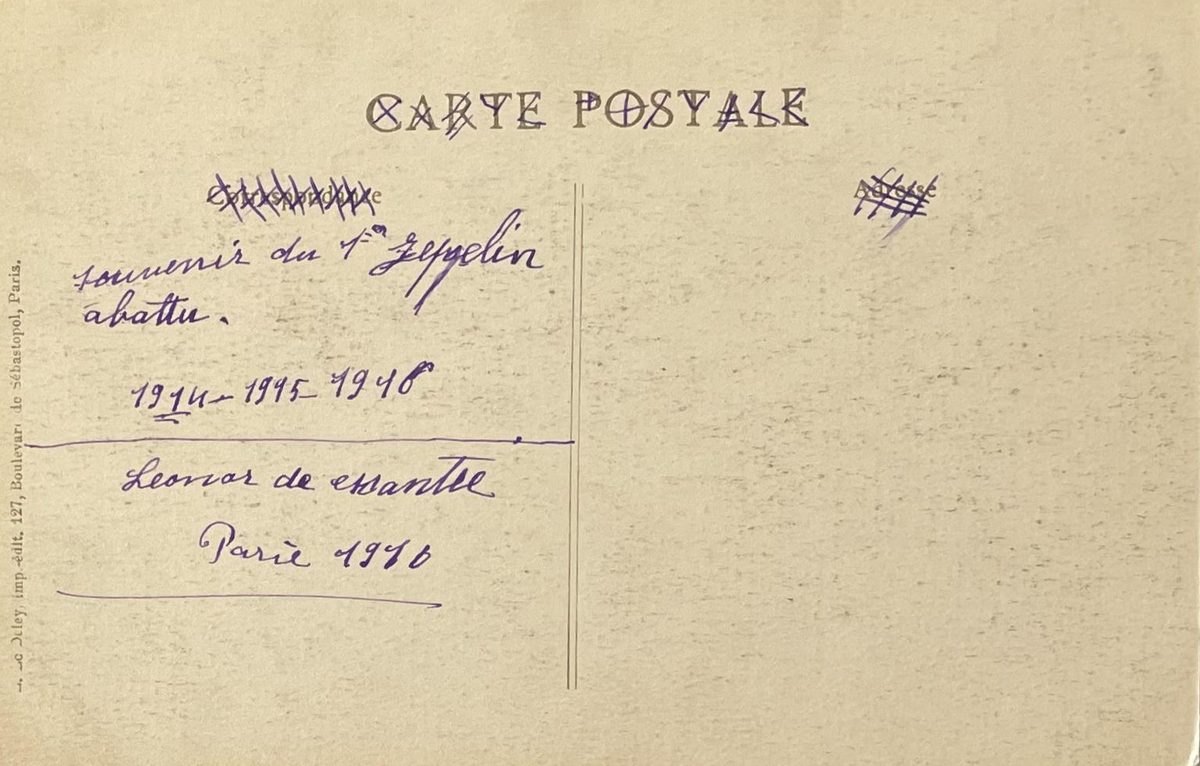 CARTE POSTALE
Correspondance
Adresse
souvenir du 1er Zeppelin
abattu.
1914-1915-1916
Leonor de
Paris 1916
imp.-édit. 127, Boulevard de Sébastopol, Paris.